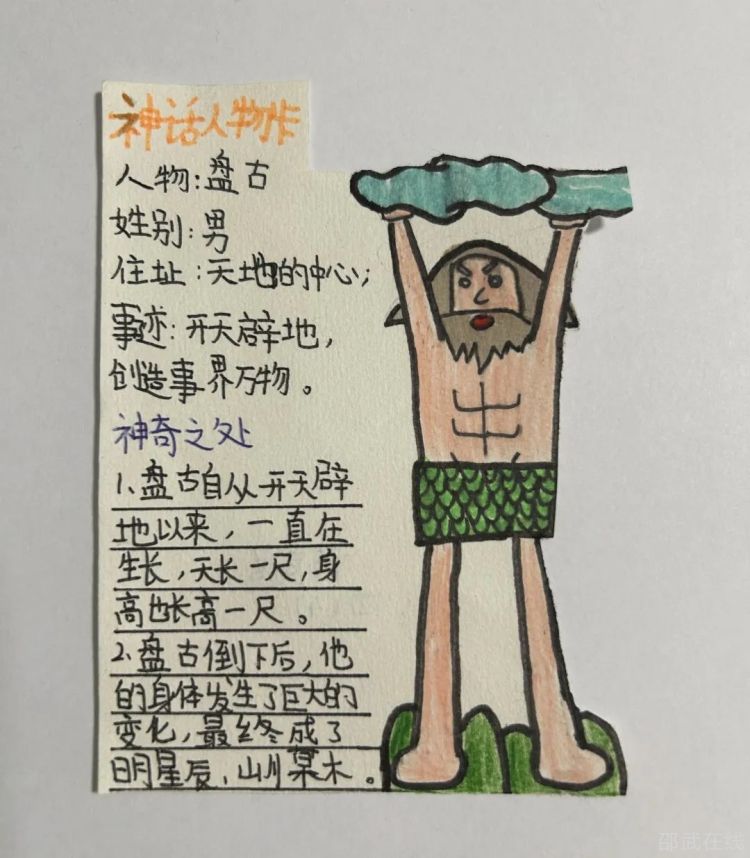 神话人物卡
人物:盘古
姓别:男
住址:天地的中心;
事迹:开天辟地,
创造事界万物。
神奇之处
1、盘古自从开天辟
地以来,一直在
生长,天长一尺,身
高也长高一尺。
2、盘古倒下后,他
的身体发生了巨大的
变化,最终成了
明星辰、山川某木。
邵武在线